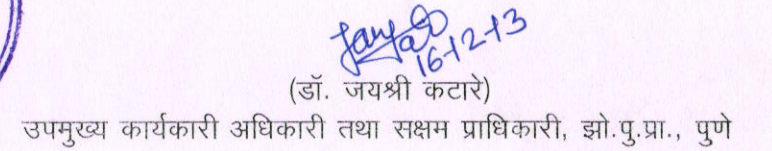 16-12-13
(डॉ. जयश्री कटारे)
उपमुख्य कार्यकारी अधिकारी तथा सक्षम प्राधिकारी, झो.पु.प्रा., पुणे